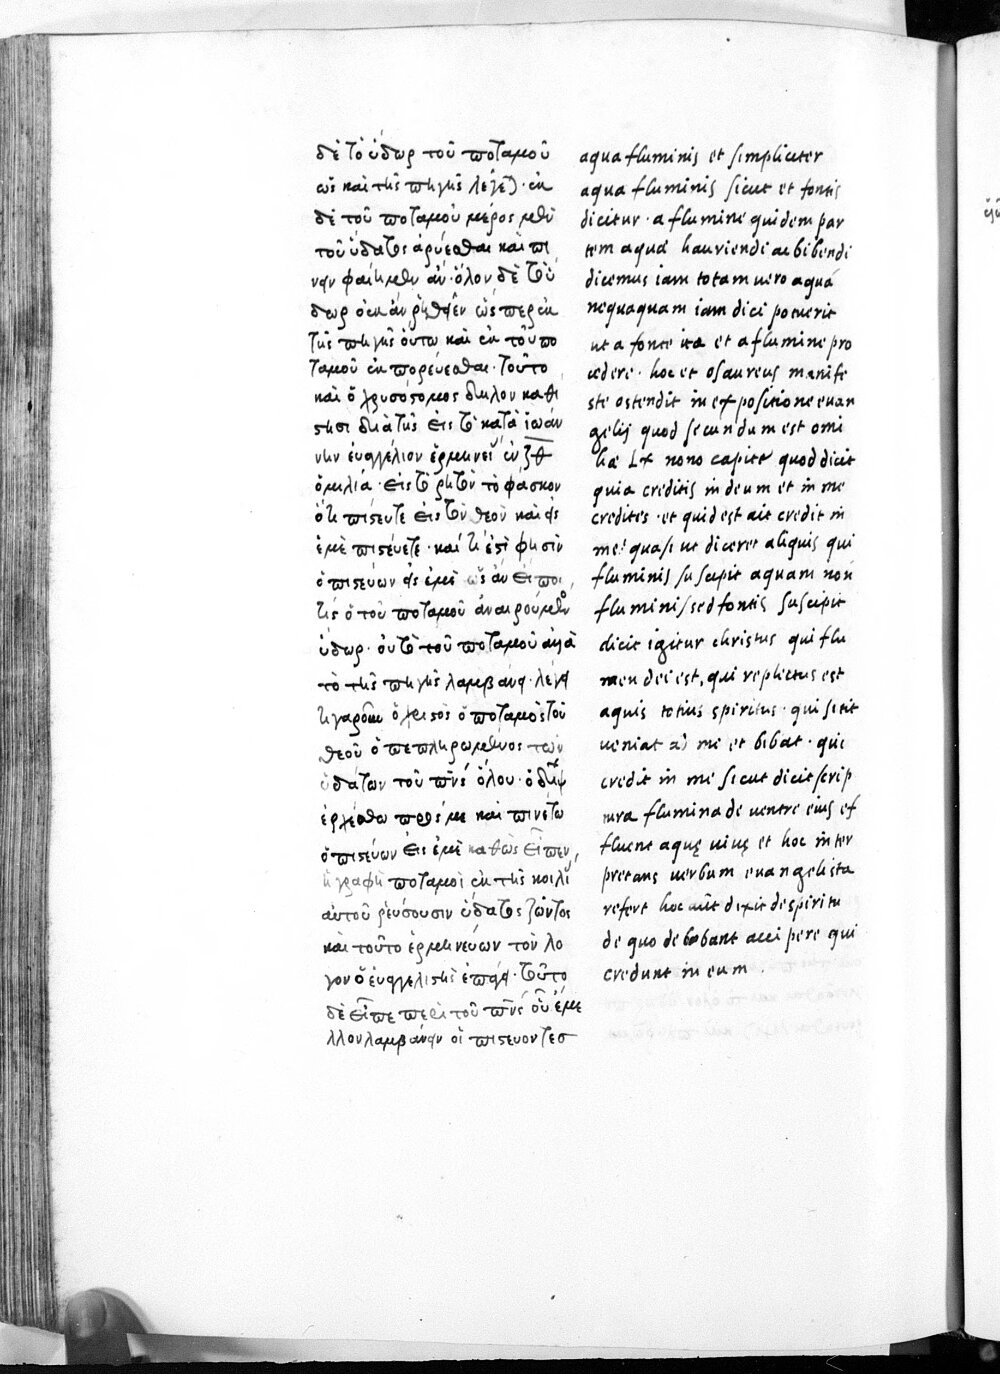 δὲ τὸ ὕδωρ τοῦ ποταμοῦ
ὡς καὶ τῆς πηγῆς λέγετ(αι)· ἐκ
δὲ τοῦ ποταμοῦ μέρος μὲν
τοῦ ὕδατος ἀρύεσθαι καὶ πί
νειν φαίημεν ἄν· ὅλον δὲ τὸ ὕ
δωρ οὐκ ἂν ῥηθείη ὥς περ ἐκ
τῆς πηγῆς οὕτω καὶ ἐκ τοῦ πο
ταμοῦ ἐκ πορεύεσθαι· τοῦτο
καὶ ὁ χρυσόστομος δῆλον καθί
στησι διὰ τῆς εἰς τὸ κατὰ ἰωάν
νην ἐυαγγέλιον ἑρμηνεί ἐν ξθ
ὁμιλία· εἰς τὸ ῥητὸν τὸ φάσκον
ὅτι πιστεύετε εἰς τὸν θεὸν καὶ εἰς
ἐμὲ πιστεύετε· καί τί ἐστὶ φησὶν
ὁ πιστεύων εἰς ἐμὲ ὡς ἂν εἴποι
τὶς ὁ τοῦ ποταμοῦ ἀναιρούμενος
ὕδωρ· οὐ τὸ τοῦ ποταμοῦ ἀλλὰ
τὸ τῆς πηγῆς λαμβάνει· λέγει
ὁ χριστὸς ὁ ποταμὸς τοῦ
θεοῦ ὁ πεπληρωμένος τῶν
ὑδάτων τοῦ πνς ὅλου· ὁ διψῶν
ἐρχέσθω πρός με καὶ πινέτω
ὁ πιστεύων εἰς ἐμὲ καθὼς εἶπεν
ἡ γραφὴ ποταμοὶ ἐκ τῆς κοιλί
αὐτοῦ ῥεύσουσιν ὕδατος ζῶντος
καὶ τοῦτο ἑρμηνεύων τὸν λό
γον ὁ ἐυαγγελιστὴς ἐπάγει· τοῦτο
δὲ εἶπε περὶ τοῦ πνς οὗ ἔμε
λλον λαμβάνειν οἱ πιστευοντες
aqua fluminis et simpliciter
aqua fluminis sicut et fontis
dicitur · a flumine quidem par
tem aquæ hauriendi ac bibendi
dicemus iam totam uero aquā
nequaquam iam dici potuerit
ut a fonte ita et a flumine pro
cedere · hoc et os aureus manife
ste ostendit in expositione euan
gelij quod secundum est omi
liæ Lx nono capite quod dicit
quia creditis in deum et in me
credites · et quid est ait credit in
me? quasi ut diceret aliquis qui
fluminis suscipit aquam non
fluminis sed fontis suscipit
dicit igitur christus qui flu
men dei est, qui repletus est
aquis totius spiritus · qui sitit
ueniat ad me et bibat · qui
credit in me sicut dicit scrip
tura flumina de uentre eius ef
fluent aquę uiuę et hoc inter
pretans uerbum euangelista
refert hoc aūt dixit de spiritu
de quo debebant accipere qui
credunt in eum .